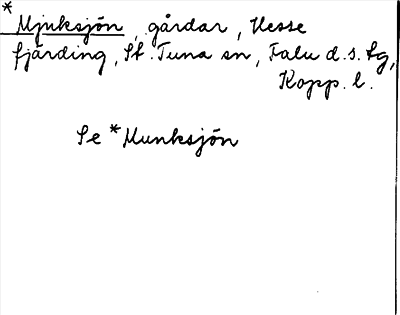 * Mjuksjön, gårdar, Hesse
fjärding, St. Tuna sn, Falu d.s. tg,
Kopp. l.
Se * Munksjön